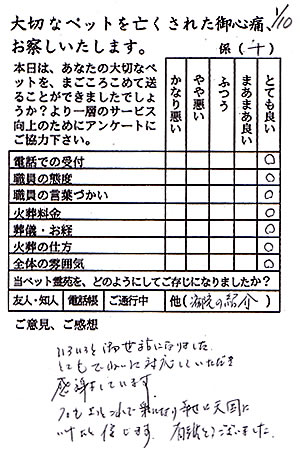 大切なペットを亡くされた御心痛、
お察しいたします。
1/10
係( 十 )
本日は、あなたの大切なペ
ットを、まごころこめて送
ることができましたでしょ
うか?より一層のサービス
向上のためにアンケートに
ご協力下さい。
かなり悪い
やや悪い
ふつう
まあまあ良い
とても良い
電話での受付 ○
職員の態度 ○
職員の言葉づかい ○
火葬料金 ○
葬儀・お経 ○
火葬の仕方 ○
全体の雰囲気 ○
当ペット霊苑を、どのようにしてご存じになりましたか?
友人・知人 電話帳 ご通行中 他( 病院の紹介 )
ご意見、ご感想
いろいろと御世話になりました。
とてもていねいに対応していただき
感謝しています。
天国に
信じます。有難とうございました。